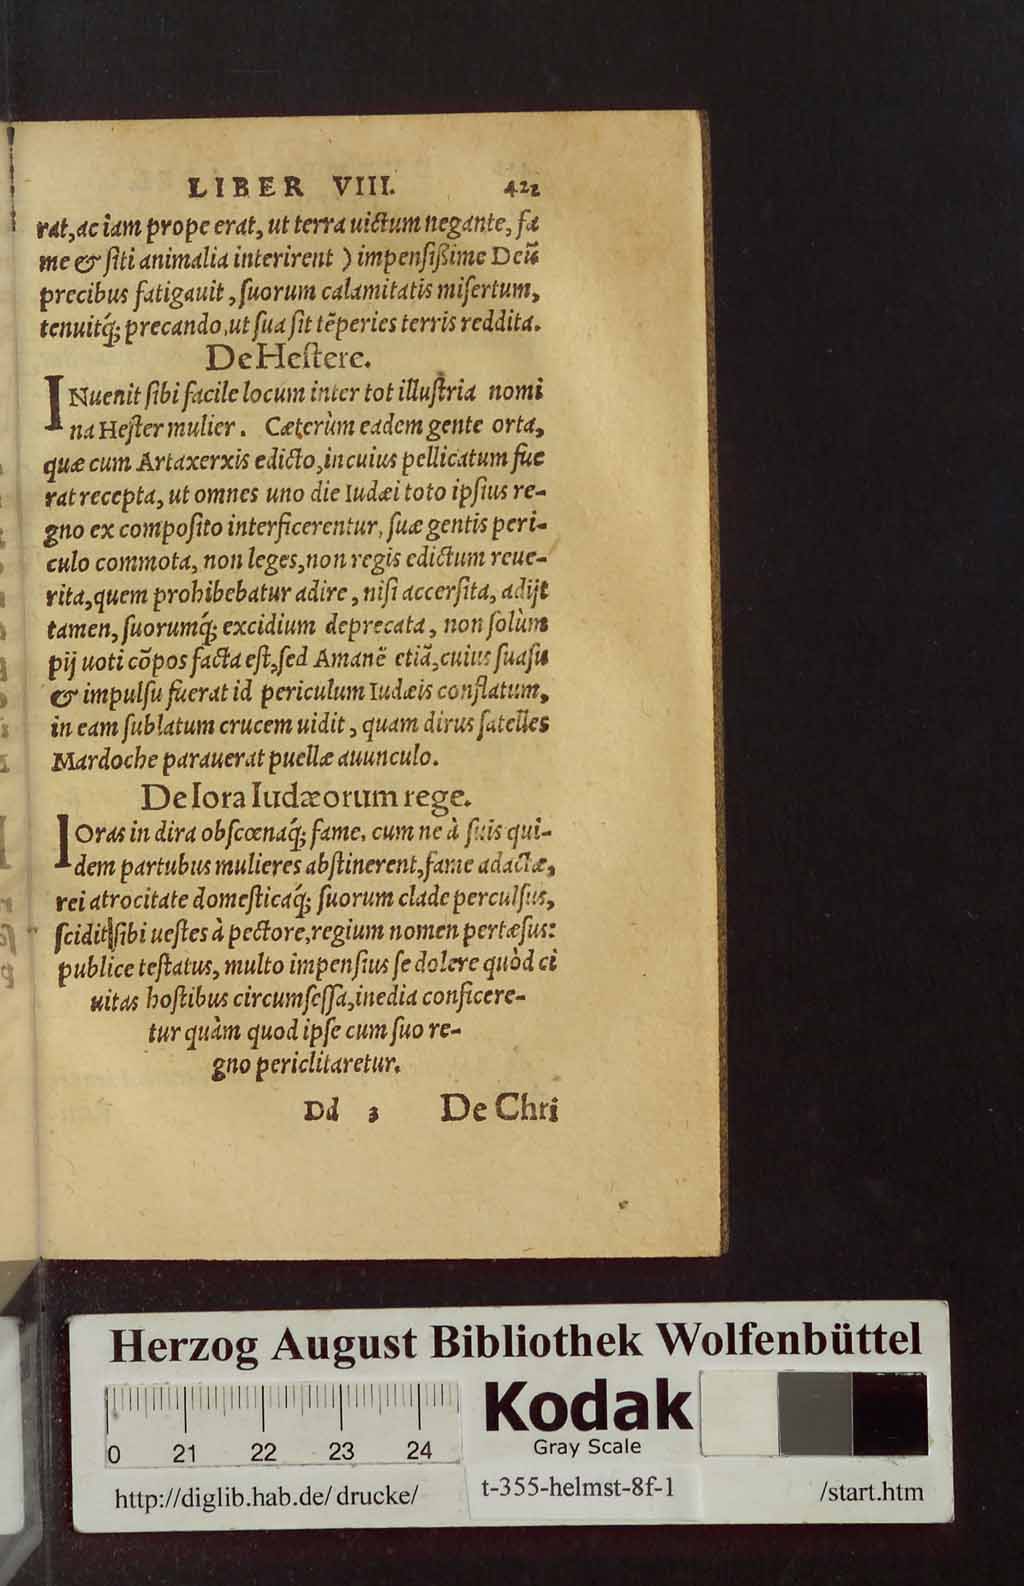 LIBER VIII. 422
rat, ac iam prope erat, ut terra uictum negante, fa
me & siti animalia interirent ) impensißime Deũ
precibus fatigauit, suorum calamitatis misertum,
tenuitq́; precando, ut sua sit tẽperies terris reddita.
De Hestere.
INuenit sibi facile locum inter tot illustria nomi
na Hester mulier. Cæterùm eadem gente orta,
quæ cum Artaxerxis edicto, in cuius pellicatum fue
rat recepta, ut omnes uno die Iudæi toto ipsius re-
gno ex composito interficerentur, suæ gentis peri-
culo commota, non leges, non regis edictum reue-
rita, quem prohibebatur adire, nisi accersita, adijt
tamen, suorumq́; excidium deprecata, non solùm
pij uoti cõpos facta est, sed Amanẽ etiã, cuius suasu
& impulsu fuerat id periculum Iudæis conflatum,
in eam sublatum crucem uidit, quam dirus satelles
Mardoche parauerat puellæ auunculo.
De Iora Iudæorum rege.
IOras in dira obscœnaq́; fame, cum ne à suis qui-
dem partubus mulieres abstinerent, fame adactæ,
rei atrocitate domesticaq́; suorum clade perculsus,
scidit sibi uestes à pectore, regium nomen pertæsus:
publice testatus, multo impensius se dolere quòd ci
uitas hostibus circumsessa, inedia conficere-
tur quàm quod ipse cum suo re-
gno periclitaretur.
Dd 3 De Chri
Herzog August Bibliothek Wolfenbüttel
0 21 22 23 24
Kodak
Gray Scale
http://diglib.hab.de/drucke/ t-355-helmst-8f-1 /start.htm